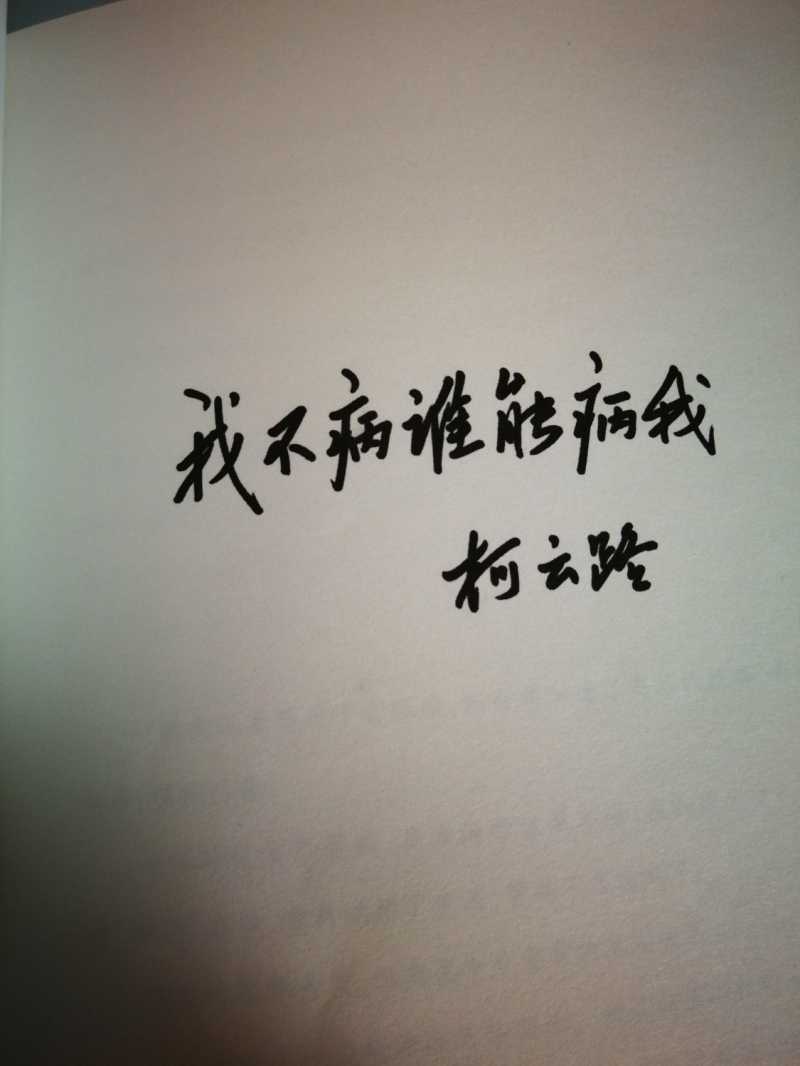 我不病谁能病我
柯云路